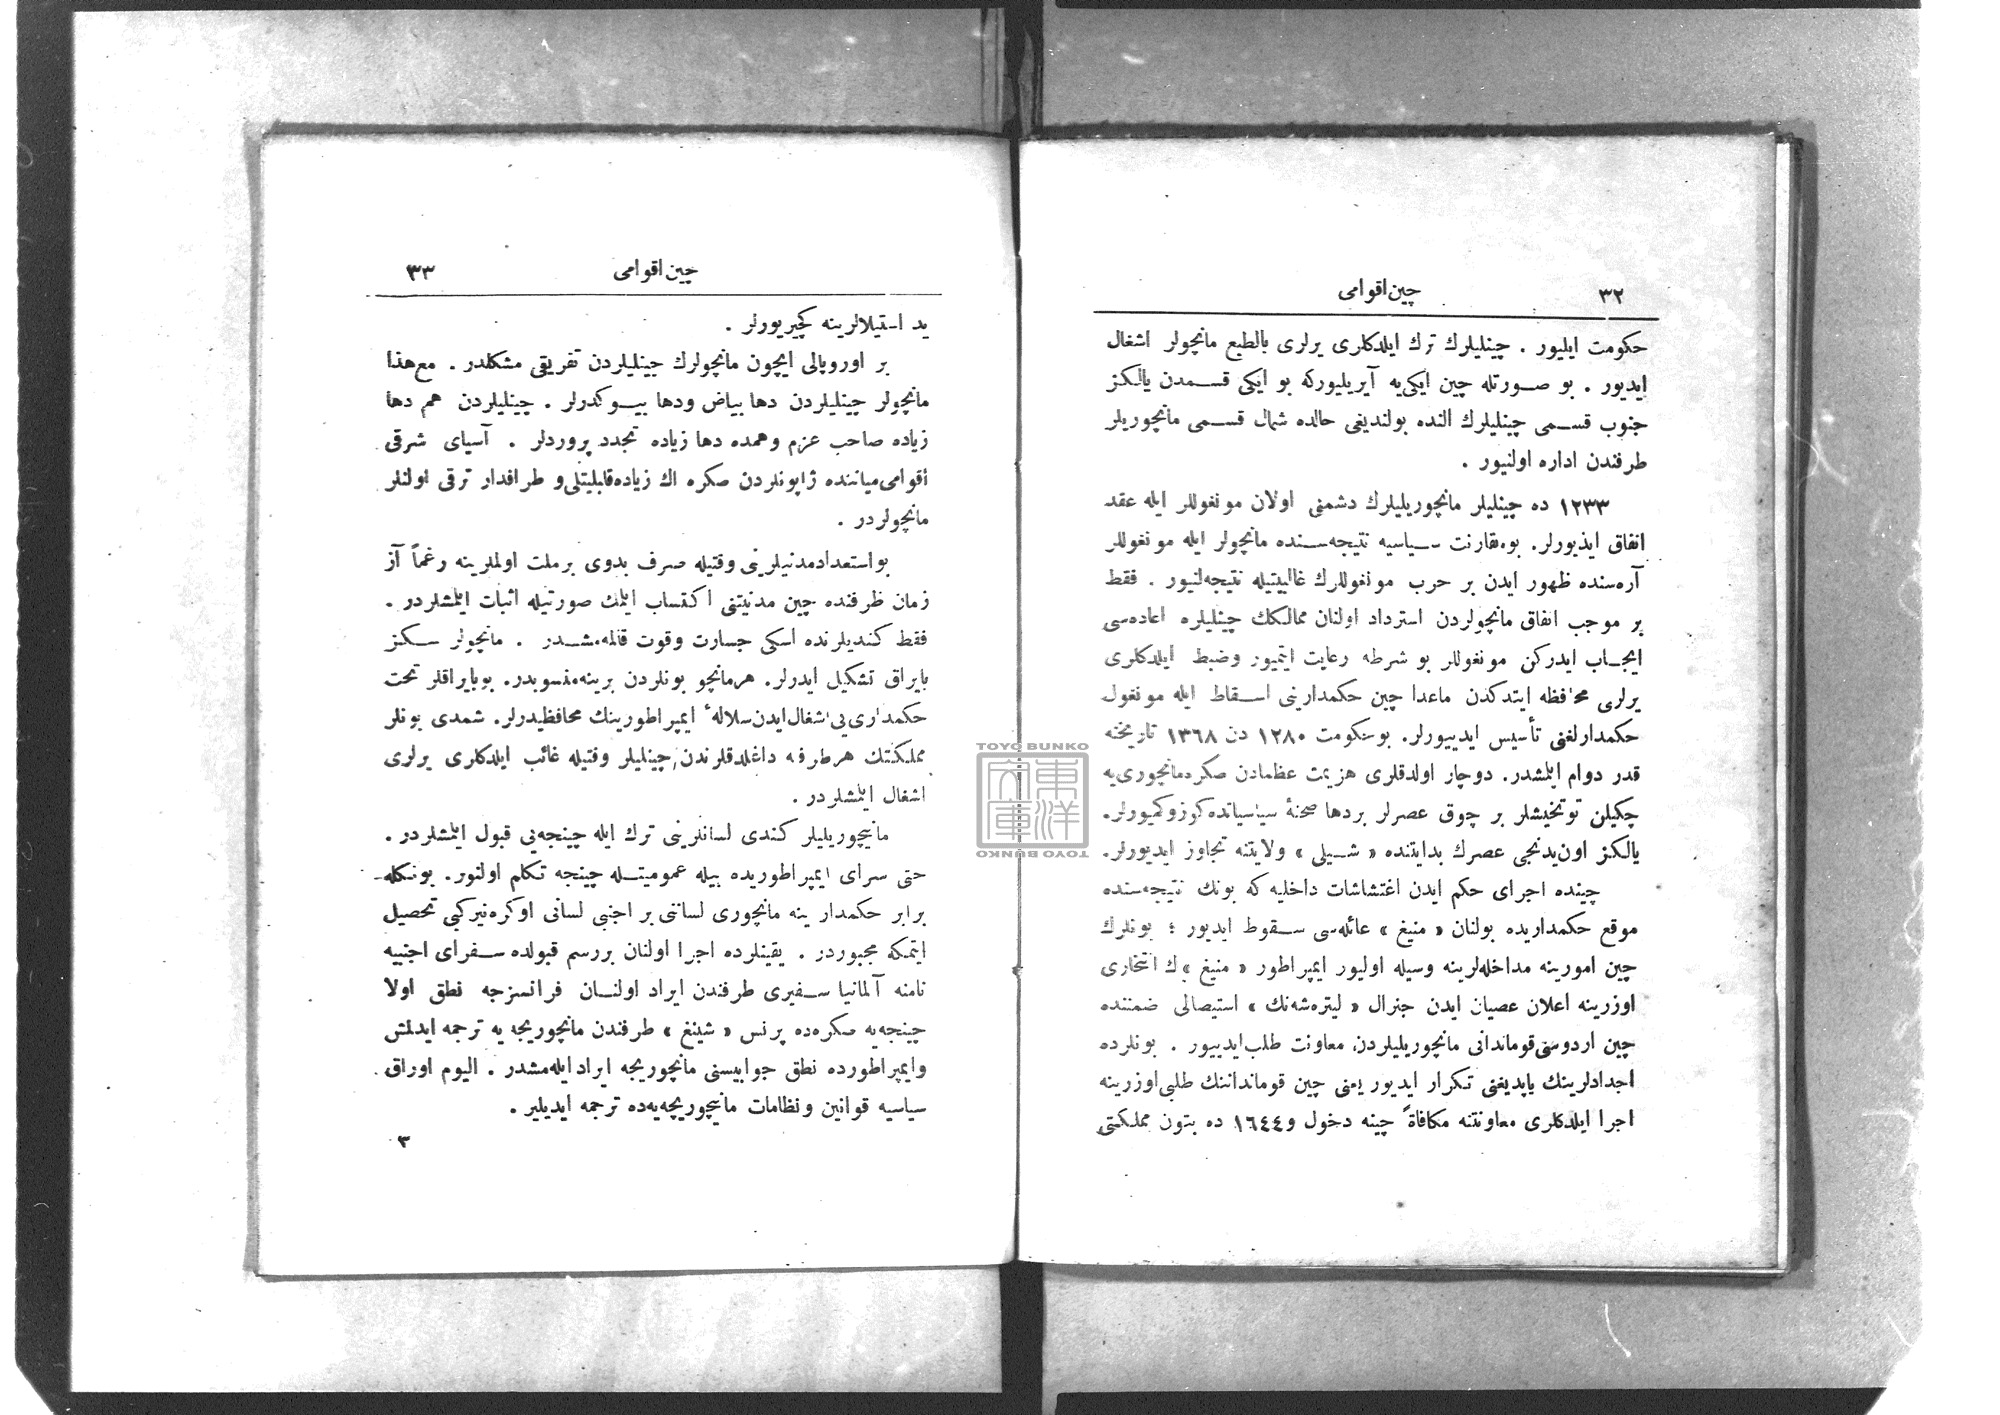 ٣٢
چین اقوامی
حکومت ایلیور . چینلیلرك ترك ایلدکلری یرلری بالطبع مانچولر اشغال
ایدیور . بو صورتله چین ایکی‌یه آیریلیورکه بو ایکی قسمدن یالکز
جنوب قسمی چینلیلرك النده بولندیغی حالده شمال قسمی مانچوریلر
طرفندن اداره اولنیور .
١٢٣٣ ده چینلیلر مانچوریلیلرك دشمنی اولان مونغوللر ایله عقد
اتفاق ایدیورلر. بومقارنت سیاسیه نتیجه‌سنده مانچولر ایله مونغوللر
آره‌سنده ظهور ایدن بر حرب مونغوللرك غالبیتیله نتیجه‌لنیور . فقط
بر موجب اتفاق مانچولردن استرداد اولنان ممالکك چینلیلره اعاده‌سی
ایجاب ایدرکن مونغوللر بو شرطه رعایت ایتمیور وضبط ایلدکلری
یرلری محافظه ایتدکدن ماعدا چین حکمدارینی اسقاط ایله مونغول
حکمدارلغنی تأسیس ایدییورلر. بوحکومت ١٢٨٠ دن ١٣٦٨ تاریخنه
قدر دوام ایلمشدر. دوچار اولدقلری هزیمت عظمادن صکره‌مانچوری‌یه
چکیلن تونغیشلر بر چوق عصرلر بردها صحنۀ سیاسیاتده‌کوزوکمیورلر.
یالکز اون‌یدنجی عصرك بدایتنده « شیلی » ولایتنه تجاوز ایدیورلر.
چینده اجرای حکم ایدن اغتشاشات داخلیه که بونك نتیجه‌سنده
موقع حکمداریده بولنان « منیغ » عائله‌سی سقوط ایدیور ؛ بونلرك
چین امورینه مداخله‌لرینه وسیله اولیور ایمپراطور « منیغ »ك انتحاری
اوزرینه اعلان عصیان ایدن جنرال « لیتره‌شه‌نك » استیصالی ضمننده
چین اردوسی‌قوماندانی مانچوریلیلردن معاونت طلب‌ایدییور . بونلرده
اجدادلرینك یاپدیغنی تکرار ایدیور یعنی چین قوماندانك طلبی‌اوزرینه
اجرا ایلدکلری معاونتنه مکافاةً چینه دخول و١٦٤٤ ده بتون مملکتی
٣٣
چین اقوامی
ید استیلالرینه کچیریورلر .
بر اوروپالی ایچون مانچولرك چینلیلردن تفریقی مشکلدر . مع‌هذا
مانچولر چینلیلردن دها بیاض ودها بیوکدرلر . چینلیلردن هم دها
زیاده صاحب عزم وهمده دها زیاده تجدد پروردلر . آسیای شرقی
اقوامی‌میاننده ژاپونلردن صکره اك زیاده‌قابلیتلی‌و طرافدار ترقی اولنلر
مانچولردر .
بواستعدادمدنیلرینی وقتیله صرف بدوی برملت اولملرینه رغماً آز
زمان ظرفنده چین مدنیتنی اکتساب ایلمك صورتیله اثبات ایلمشلردر .
فقط کندیلرنده اسکی جسارت وقوت قالمه‌مشدر . مانچولر سکز
بایراق تشکیل ایدرلر. هرمانچو بونلردن برینه‌منسوبدر. بوبایراقلر تحت
حکمداری‌یی‌اشغال‌ایدن‌سلالۀ ایمپراطورینك محافظیدرلر. شمدی بونلر
مملکتك هرطرفه داغلدقلرندن چینلیلر وقتیله غائب ایلدکلری یرلری
اشغال ایلمشلردر .
مانیچوریلیلر کندی لسانلرینی ترك ایله چینجه‌یی قبول ایلمشلردر .
حتی سرای ایمپراطوریده بیله عمومیتله چینجه تکلم اولنور. بونکله
برابر حکمدار ینه مانچوری لساننی بر اجنبی لسانی اوکره‌نیرکبی تحصیل
ایتمکه مجبوردر . یقینلرده اجرا اولنان بررسم قبولده سفرای اجنبیه
نامنه آلمانیا سفیری طرفندن ایراد اولنان فرانسزجه نطق اولا
چینجه‌یه صکره‌ده پرنس « شینغ » طرفندن مانچوریجه یه ترجمه ایدلمش
وایمپراطورده نطق جوابیسنی مانچوریجه ایراد ایله‌مشدر . الیوم اوراق
سیاسیه قوانین ونظامات مانیچوریچه‌یه‌ده ترجمه ایدیلیر .
٣
TOYO BUNKO
東洋文庫
TOYO BUNKO